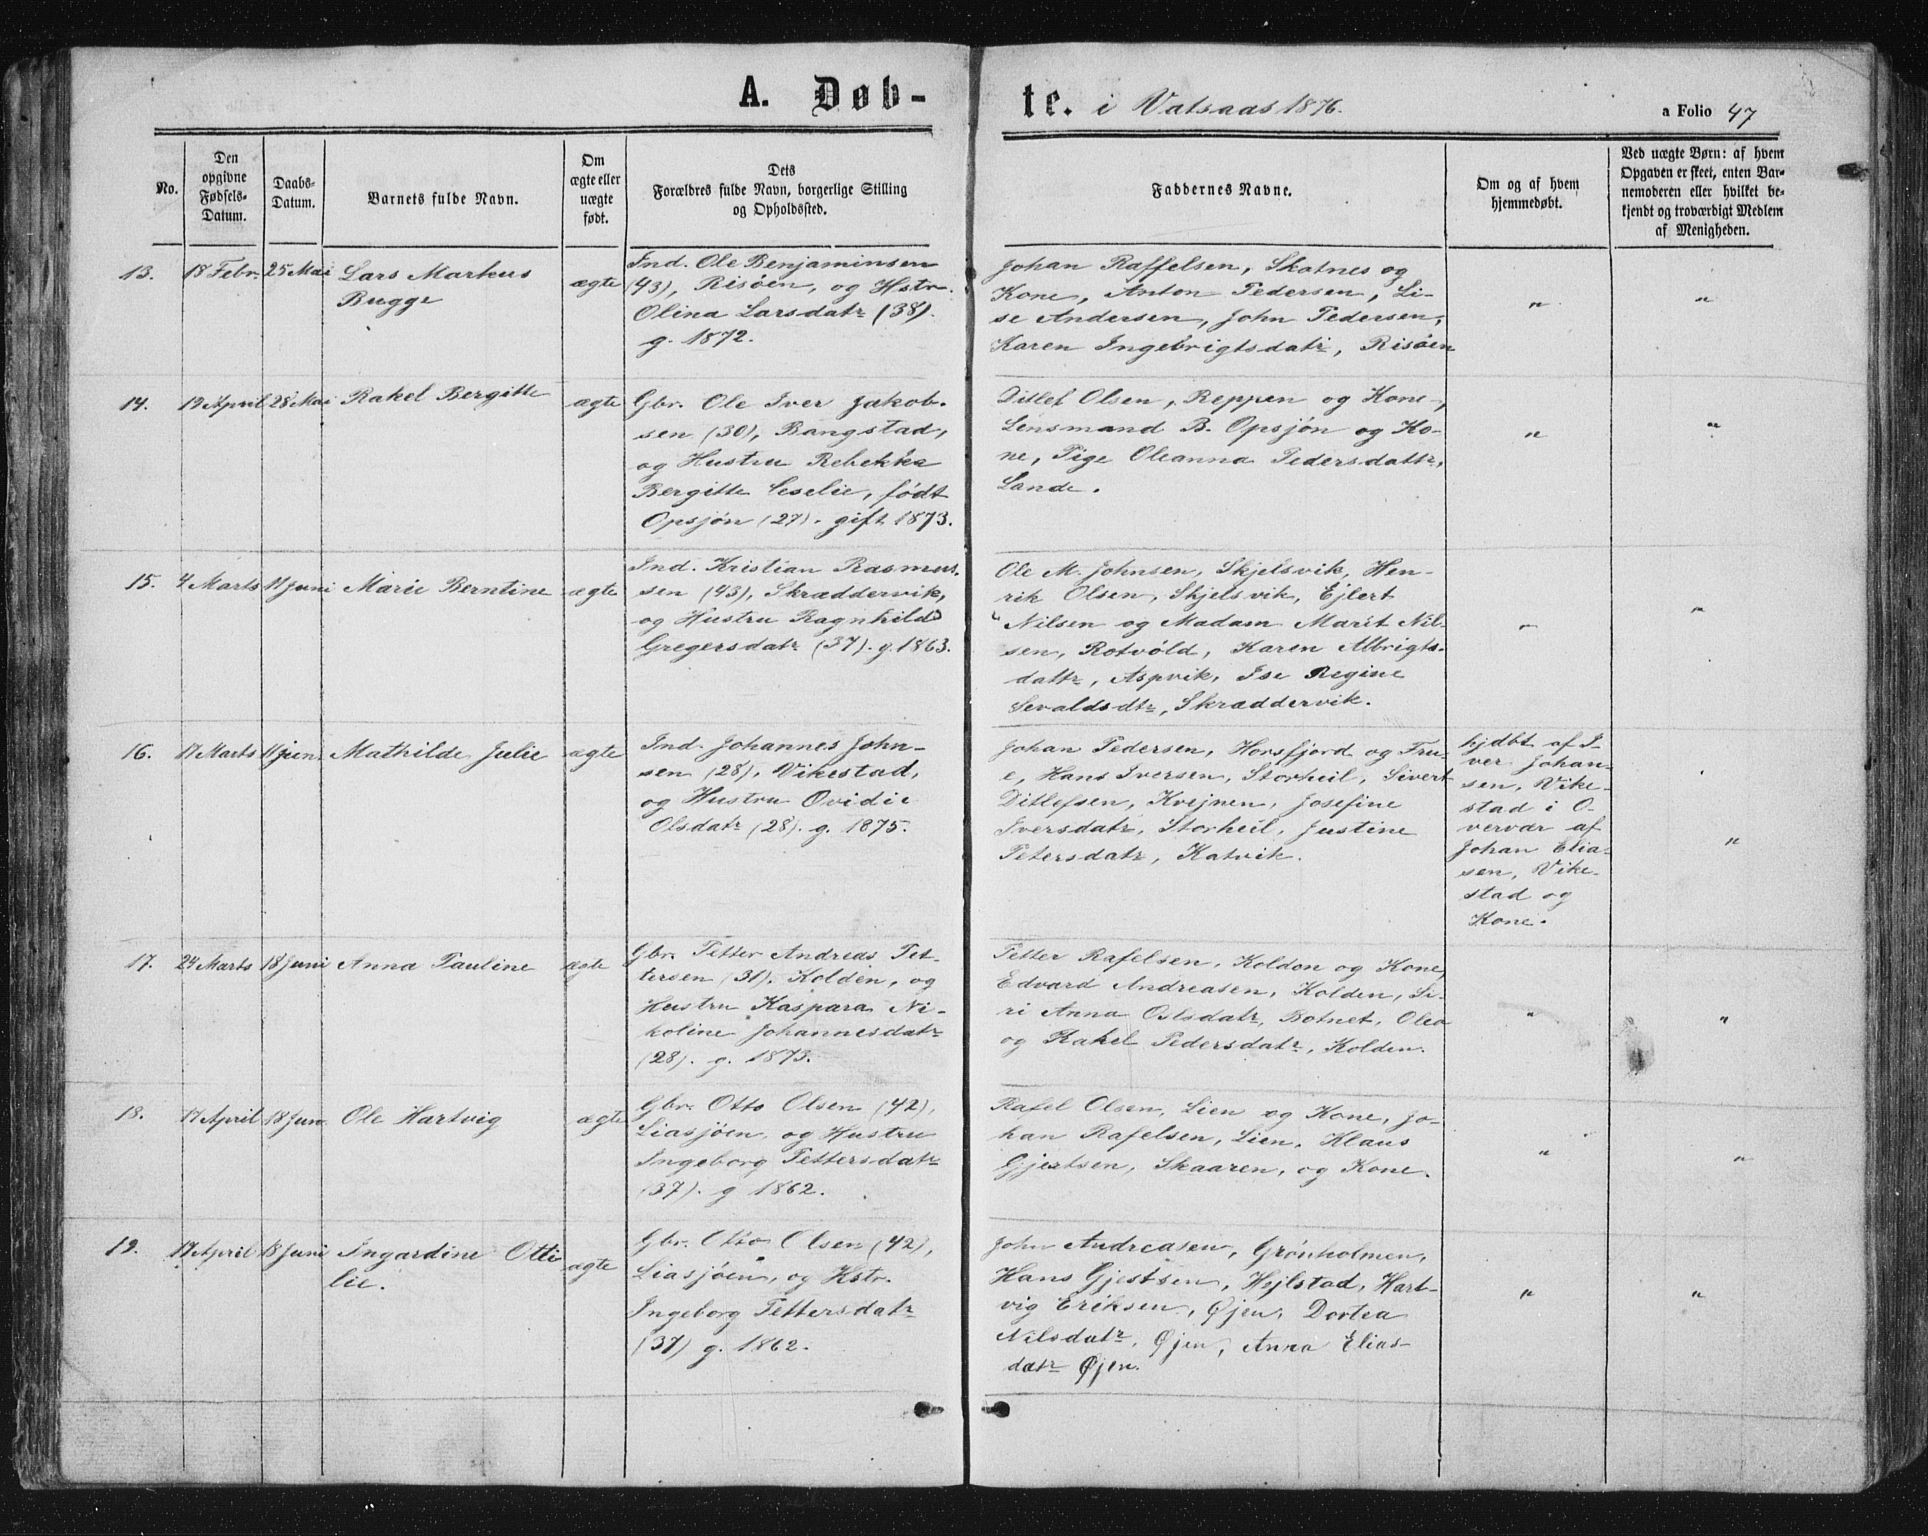 A. Døb-
te. i Vatsaas 1876.
a Folio 47
No.
Den
opgivne
Fødsels-
Datum.
Daabs-
Datum.
Barnets fulde Navn.
Om
ægte eller
uægte
født.
Dets
Forældres fulde Navn, borgerlige Stilling
og Opholdssted.
Faddernes Navne.
Om og af hvem
hjemmedøbt.
Ved uægte Børn: af hvem
Opgaven er skeet, enten Bar-
nemoderen eller hvilket be-
kjendt og troværdigt Medlem
af Menigheden.
13.
18 Febr.
25 Mai
Lars Markus
Bugge
ægte
Ind. Ole Benjaminsen
(43), Risöen, og Hstr.
Olina Larsdatr (38).
g. 1872.
Johan Raffelsen, Skatnes og
Kone, Anton Pedersen, Li-
se Andersen, John Pedersen,
Karen Ingebrigtsdatr, Risöen
"
"
14.
19 April
28 Mai
Rakel Bergitte
ægte
Gbr. Ole Iver Jakob-
sen (30), Bangstad,
og Hustru Rebekka
Bergitte Ceselie, født
Opsjön (27). gift 1873.
Ditlef Olsen, Reppen og Kone,
Lensmand B. Opsjön og Ko-
ne, Pige Oleanna Pedersdattr,
Lande.
"
"
15.
4 Marts
11 Juni
Marie Berntine
ægte
Ind. Kristian Rasmus-
sen (43), Skræddervik,
og Hustru Ragnhild
Gregersdatr (37). g. 1863.
Ole M. Johnsen, Skjelsvik, Hen-
rik Olsen, Skjelsvik, Ejlert
Nilsen og Madam Marit Nil-
sen, Rotvöld, Karen Albrigts-
dattr, Aspvik, Ise Regine
Sevaldsdtr, Skræddervik.
"
"
16.
17 Marts
11 Juni
Mathilde Julie
ægte
Ind. Johannes John-
sen (28), Vikestad,
og Hustru Ovidie
Olsdatr (28). g. 1875.
Johan Pedersen, Horsfjord og Fru-
e, Hans Iversen, Storheil, Sivert
Ditlefsen, Kvejnen, Josefine
Iversdatr, Storheil, Justine
Petersdatr, Katvik.
hjdbt af I-
ver Johan-
sen, Vike-
stad i O-
vervær af
Johan Elia-
sen, Vike-
stad og
Kone.
"
17.
24 Marts
18 Juni
Anna Pauline
ægte
Gbr. Petter Andreas Pet-
tersen (31). Kolden, og
Hustru Kaspara Ni-
koline Johannesdatr
(28). g. 1873.
Petter Rafelsen, Koldon og Kone,
Edvard Andreasen, Kolden, Si-
ri Anna Oslsdatr, Botnet, Olea
og Rakel Pedersdatr, Kolden.
"
"
18.
17 April
18 Jun.
Ole Hartvig
ægte
Gbr. Otto Olsen (42),
Liasjöen, og Hustru
Ingeborg Pettersdatr
(37). g 1862.
Rafel Olsen, Lien og Kone, Jo-
han Rafelsen, Lien, Klaus
Gjertsen, Skaaren, og Kone.
"
"
19.
17 April
18 Juni
Ingardine Otti
lie.
ægte
Gbr. Otto Olsen (42),
Liasjöen, og Hstr.
Ingeborg Pettersdatr
(37) g. 1862.
John Andreasen, Grönholmen,
Hans Gjestsen, Hejlstad, Hart-
vig Eriksen, Øjen, Dortea
Nilsdatr, Øjen, Anna Elias-
datr Øjen.
"
"